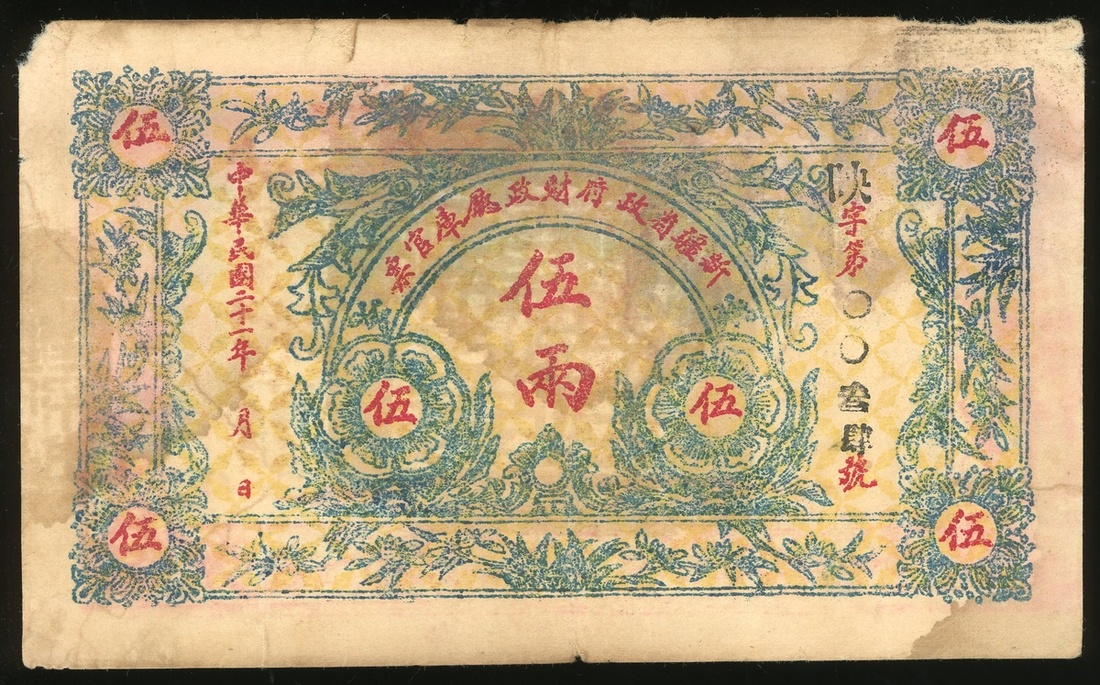 伍
伍
新疆省政府財政廳庫官票
伍
兩
伍
伍
陝字第〇〇叁肆號
中華民國二十一年 月 日
伍
伍